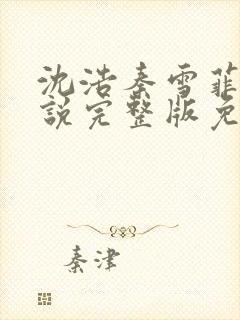 沈浩秦雪菲
說完整版免
秦津